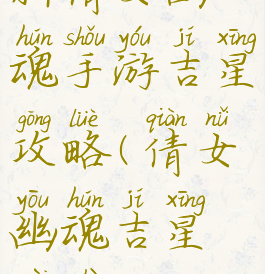 hún shǒu yóu jí xīng
魂手游吉星
gōng lüè qiàn nǚ
攻略(倩女
yōu hún jí xīng
幽魂吉星